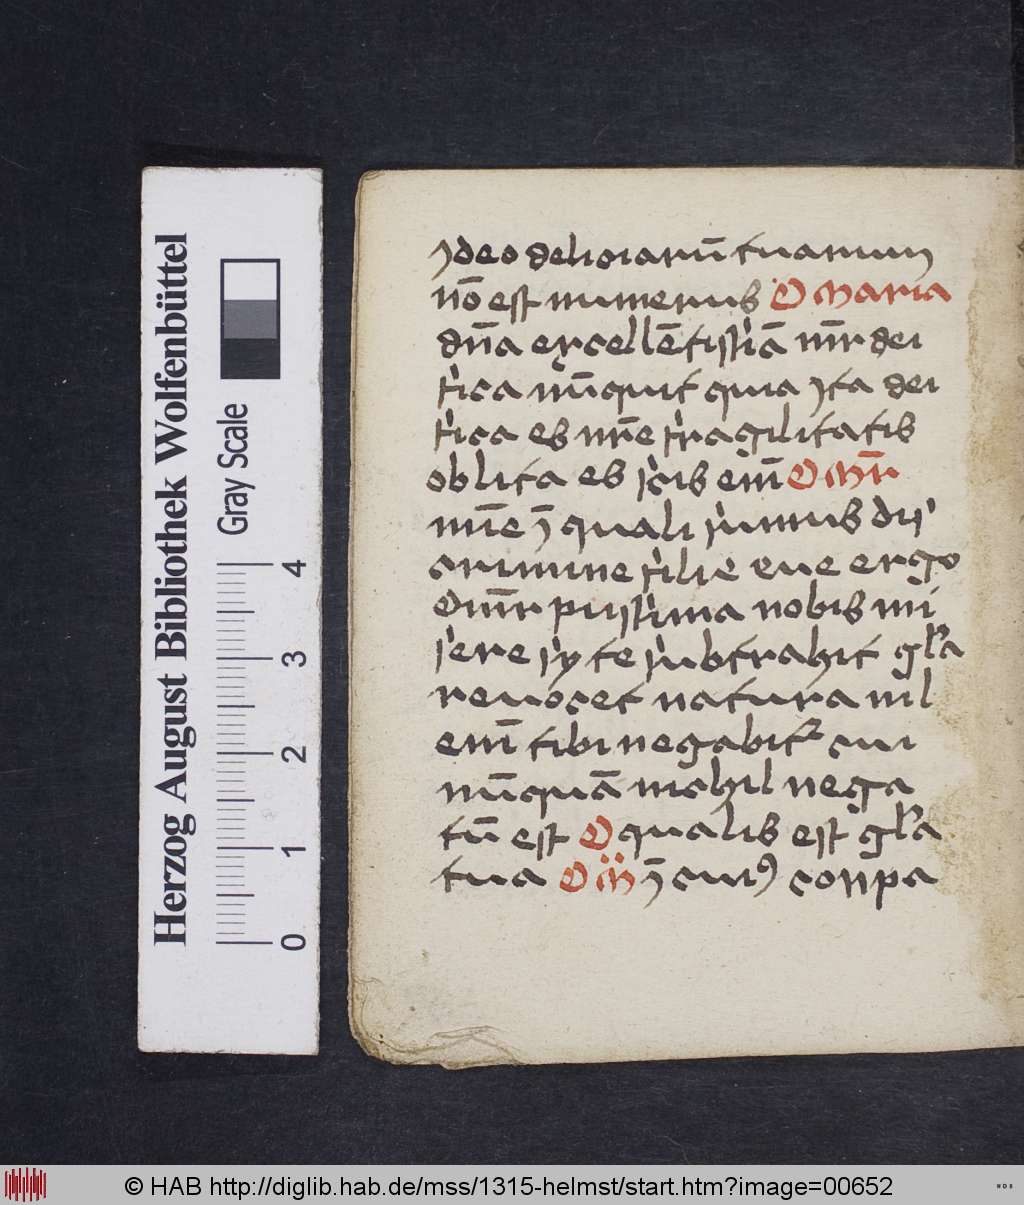 Herzog August Bibliothek Wolfenbüttel
Gray Scale
0 1 2 3 4
ydeo deliciarū tuarum
nō est numerus O Maria
dn̄a excellētissīa mr̄ dei
fica nūquit quia yta dei
fica es nr̄e fragilitatis
oblita es scis eni᷑ O Mr̄
mīe ī quali sumus dis
crimine filie eue ergo
O mr̄ piissima nobis mi
sere sy te subtrahit gl̄a
reuocet natura nil
eni᷑ tibi negabit᷑ cui
nūquā nichil nega
tū est O qualis est gl̄a
tua O M̈ ī cuiꝰ conpa
© HAB http://diglib.hab.de/mss/1315-helmst/start.htm?image=00652
WDB